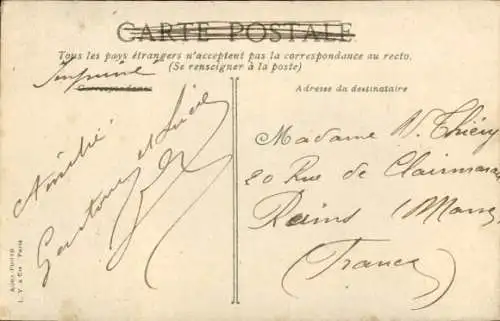 CARTE POSTALE
Tous les pays étrangers n'acceptent pas la correspondance au recto.
(Se renseigner à la poste)
Imprimé
Correspondance
Adresse du destinataire
Amitié
Gaston et Lucie
Madame V. Thiéry
20 Rue de
Reims (Marne
(France)
L. V. & Cie Paris